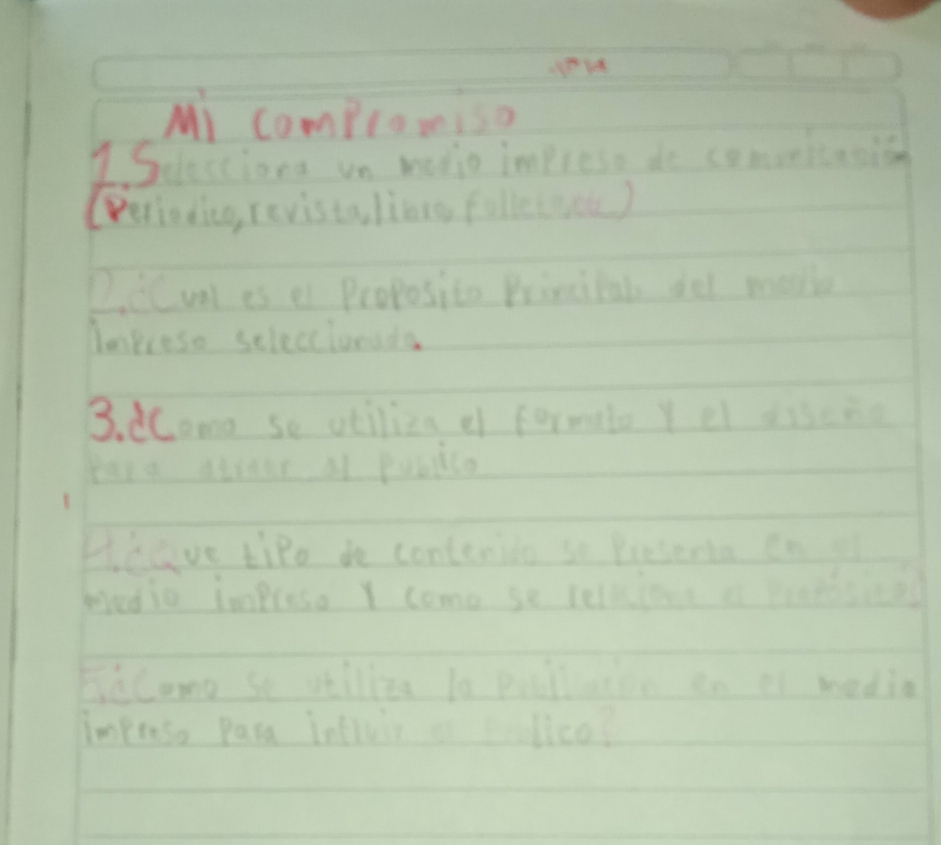 Mi compromiso
1. Selecciona un medio impreso de comunicación
(Periodico, revista, libro, folleto,
2. ¿Cual es el Proposito Principal del medio
impreso seleccionado.
3. ¿Como se utiliza el formato y el diseño
Para atraer al Publico
4. ¿Que tipo de contenido se Presenta en el
medio impreso y como se
5. ¿Como se utiliza la en el medio
impreso Para influir